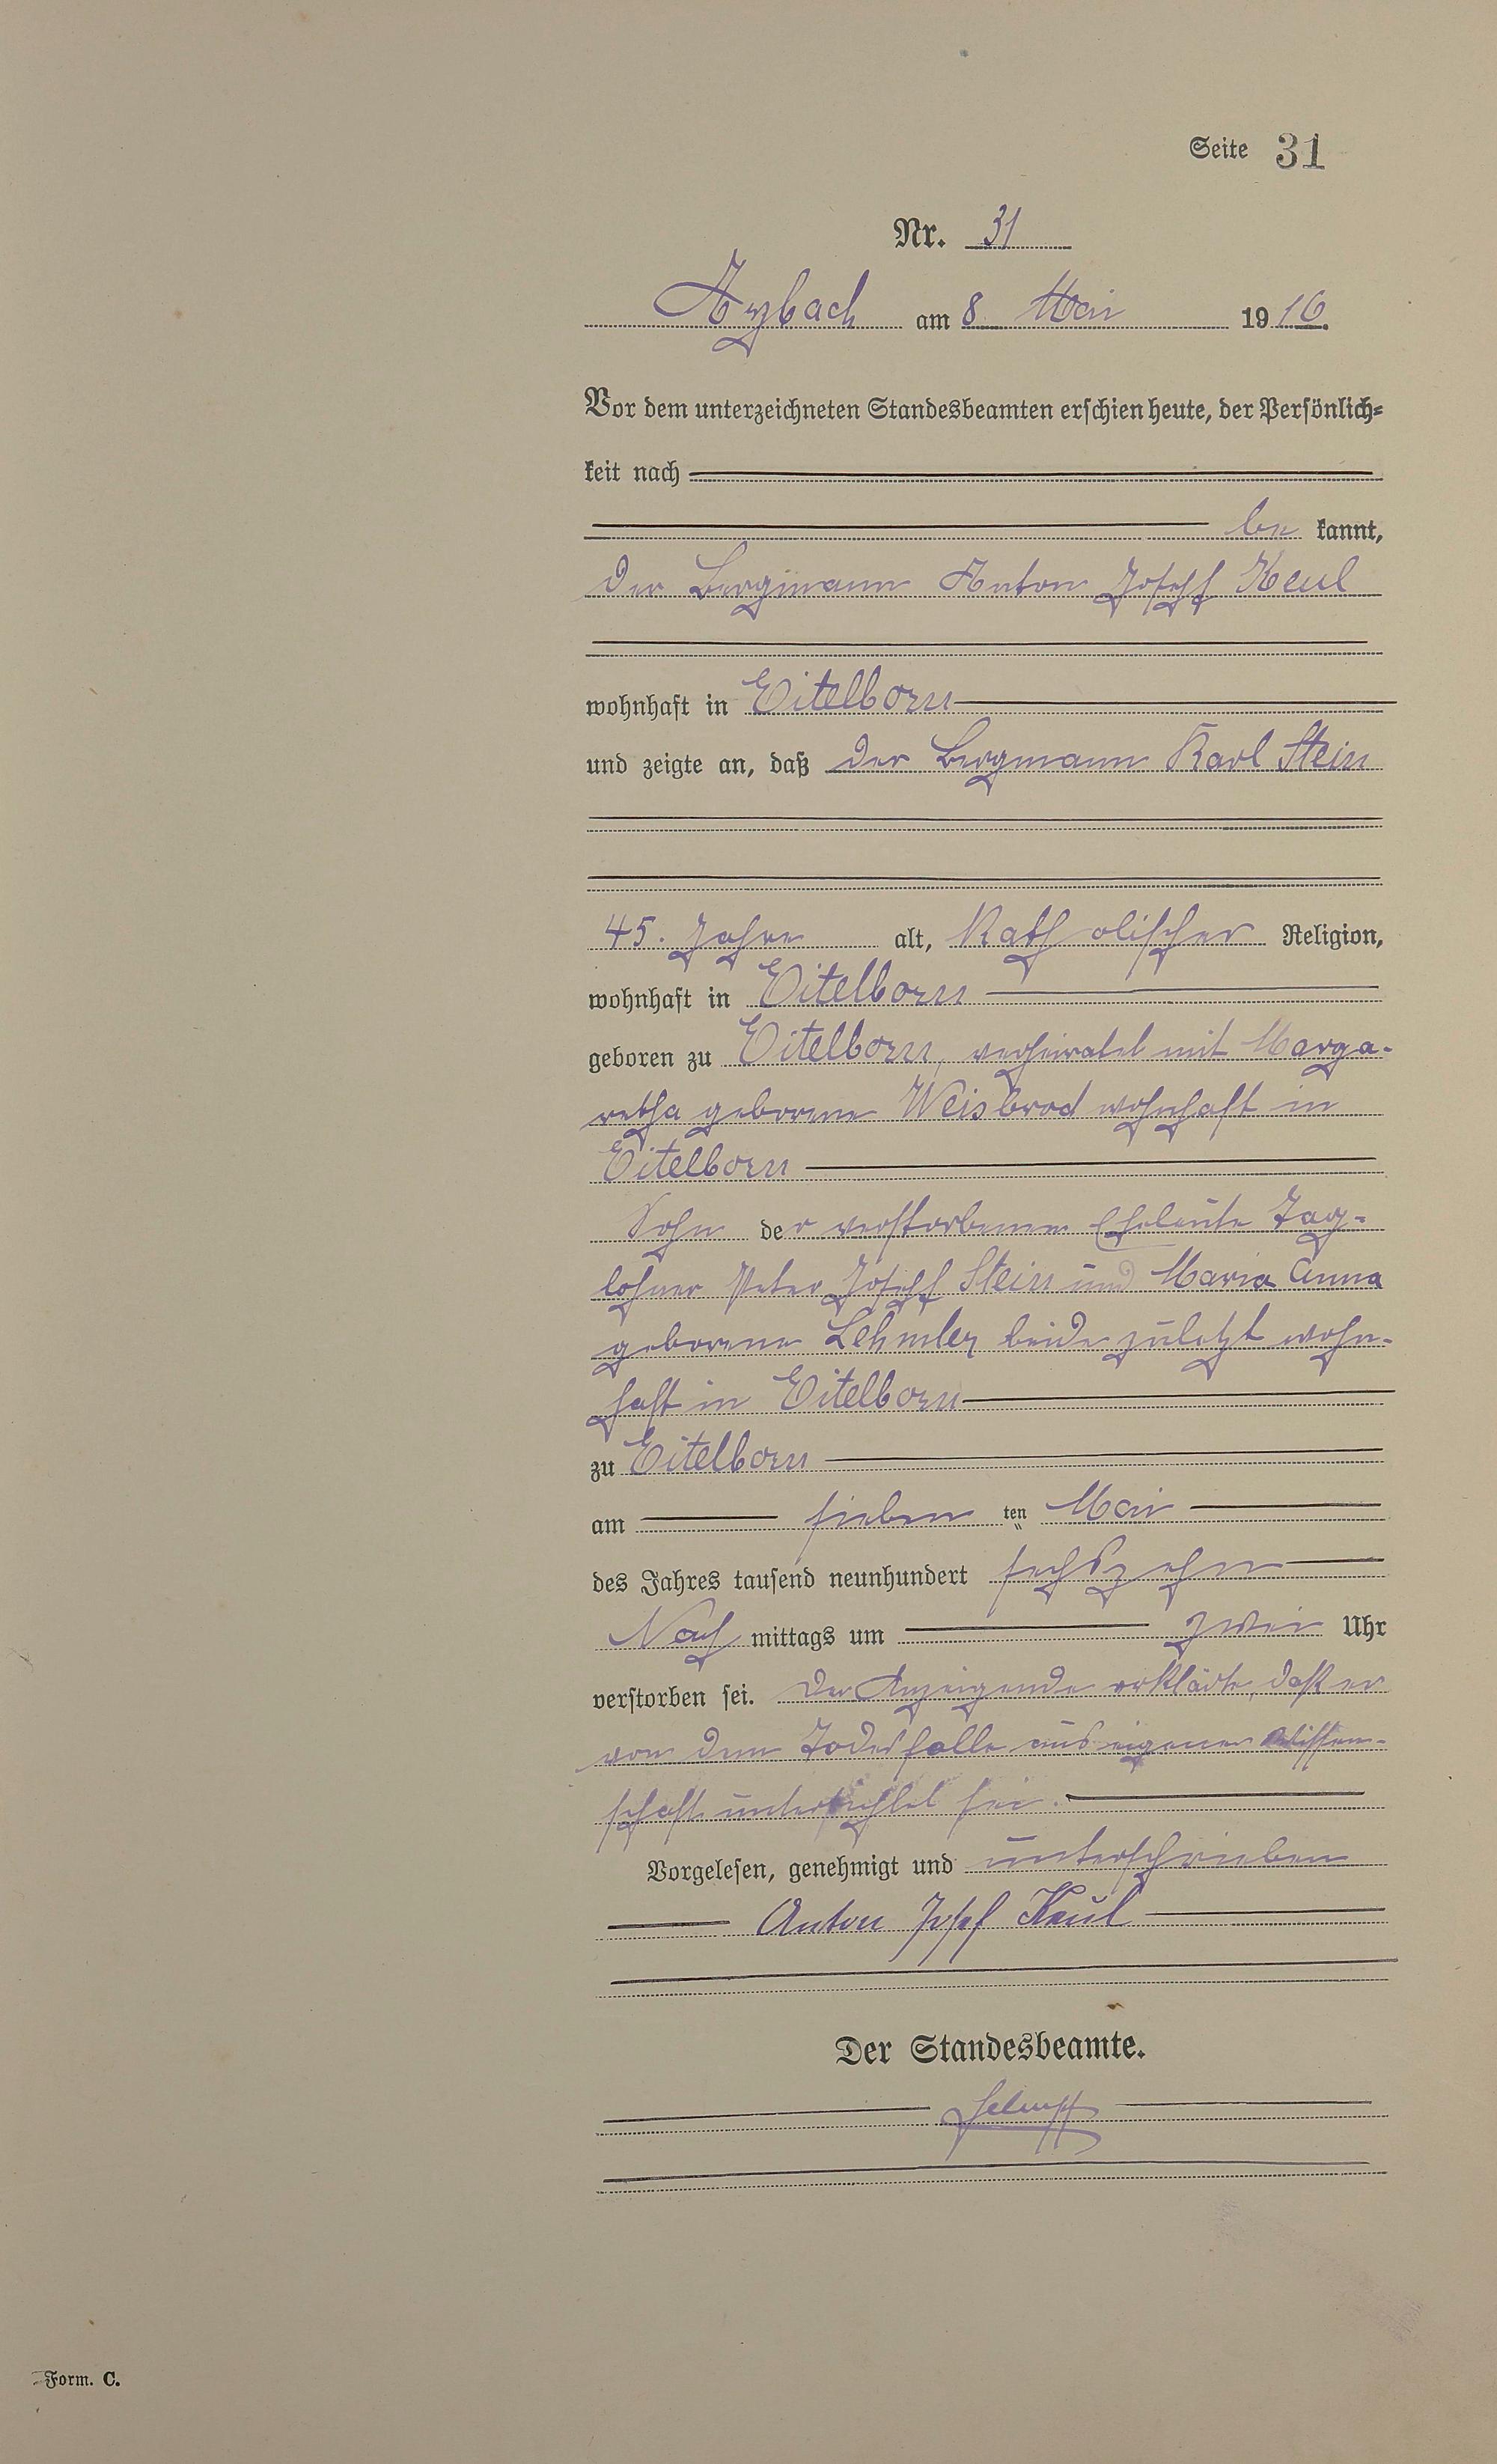 Seite 31
Nr. 31
Arzbach am 8. Mai 1916.
Vor dem unterzeichneten Standesbeamten erschien heute, der Persönlich=
keit nach
be kannt,
der Bergmann Anton Joseff Keul
wohnhaft in Eitelborn
und zeigte an, daß der Bergmann Karl Stein
45. Jahre alt, Katholischer Religion,
wohnhaft in Eitelborn
geboren zu Eitelborn, verheiratet mit Marga-
retha geborene Weisbrod wohnhaft in
Eitelborn
Sohn der verstorbenen Eheleute Tag-
lohner Peter Joseff Stein und Maria Anna
geborene Lehmler beide zuletzt wohn-
haft in Eitelborn
zu Eitelborn
am sieben ten Mai
des Jahres tausend neunhundert sechszehn
Nach mittags um zwei Uhr
verstorben sei. Der Anzeigende erklärte, daß er
von dem Todesfalle aus eigener Wissen-
schaft unterrichtet sei.
Vorgelesen, genehmigt und unterschrieben
Anton Josef Keul
Der Standesbeamte.
Form. C.